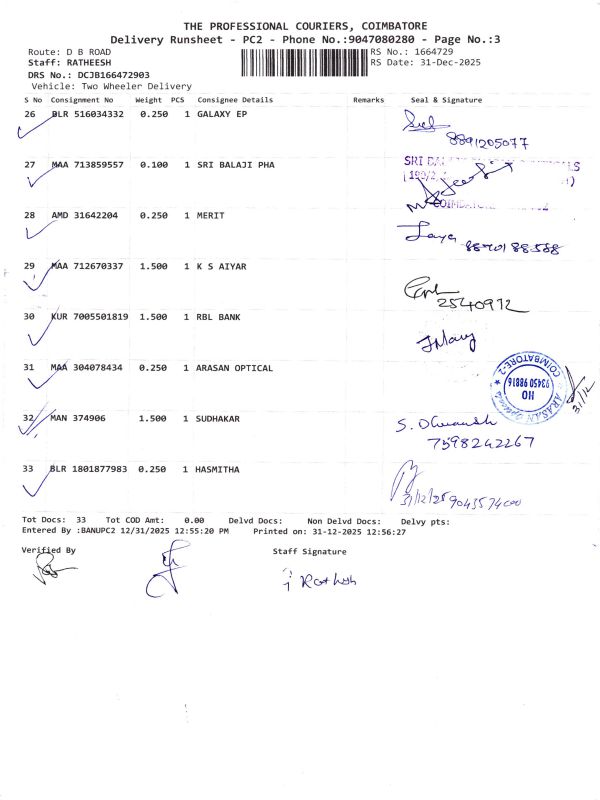 THE PROFESSIONAL COURIERS, COIMBATORE
Delivery Runsheet - PC2 - Phone No.:9047080280 - Page No.:3
Route: D B ROAD RS No.: 1664729
Staff: RATHEESH RS Date: 31-Dec-2025
DRS No.: DCJB166472903
Vehicle: Two Wheeler Delivery
S No Consignment No Weight PCS Consignee Details Remarks Seal & Signature
26 BLR 516034332 0.250 1 GALAXY EP
8891205077
27 MAA 713859557 0.100 1 SRI BALAJI PHA
SRI
28 AMD 31642204 0.250 1 MERIT
29 MAA 712670337 1.500 1 K S AIYAR
2540972
30 KUR 7005501819 1.500 1 RBL BANK
31 MAA 304078434 0.250 1 ARASAN OPTICAL
COIMBATORE-2
93450 98816
HO
ARASAN
31/12
32 MAN 374906 1.500 1 SUDHAKAR
S.
7598242267
33 BLR 1801877983 0.250 1 HASMITHA
31/12/25
Tot Docs: 33 Tot COD Amt: 0.00 Delvd Docs: Non Delvd Docs: Delvy pts:
Entered By :BANUPC2 12/31/2025 12:55:20 PM Printed on: 31-12-2025 12:56:27
Verified By Staff Signature